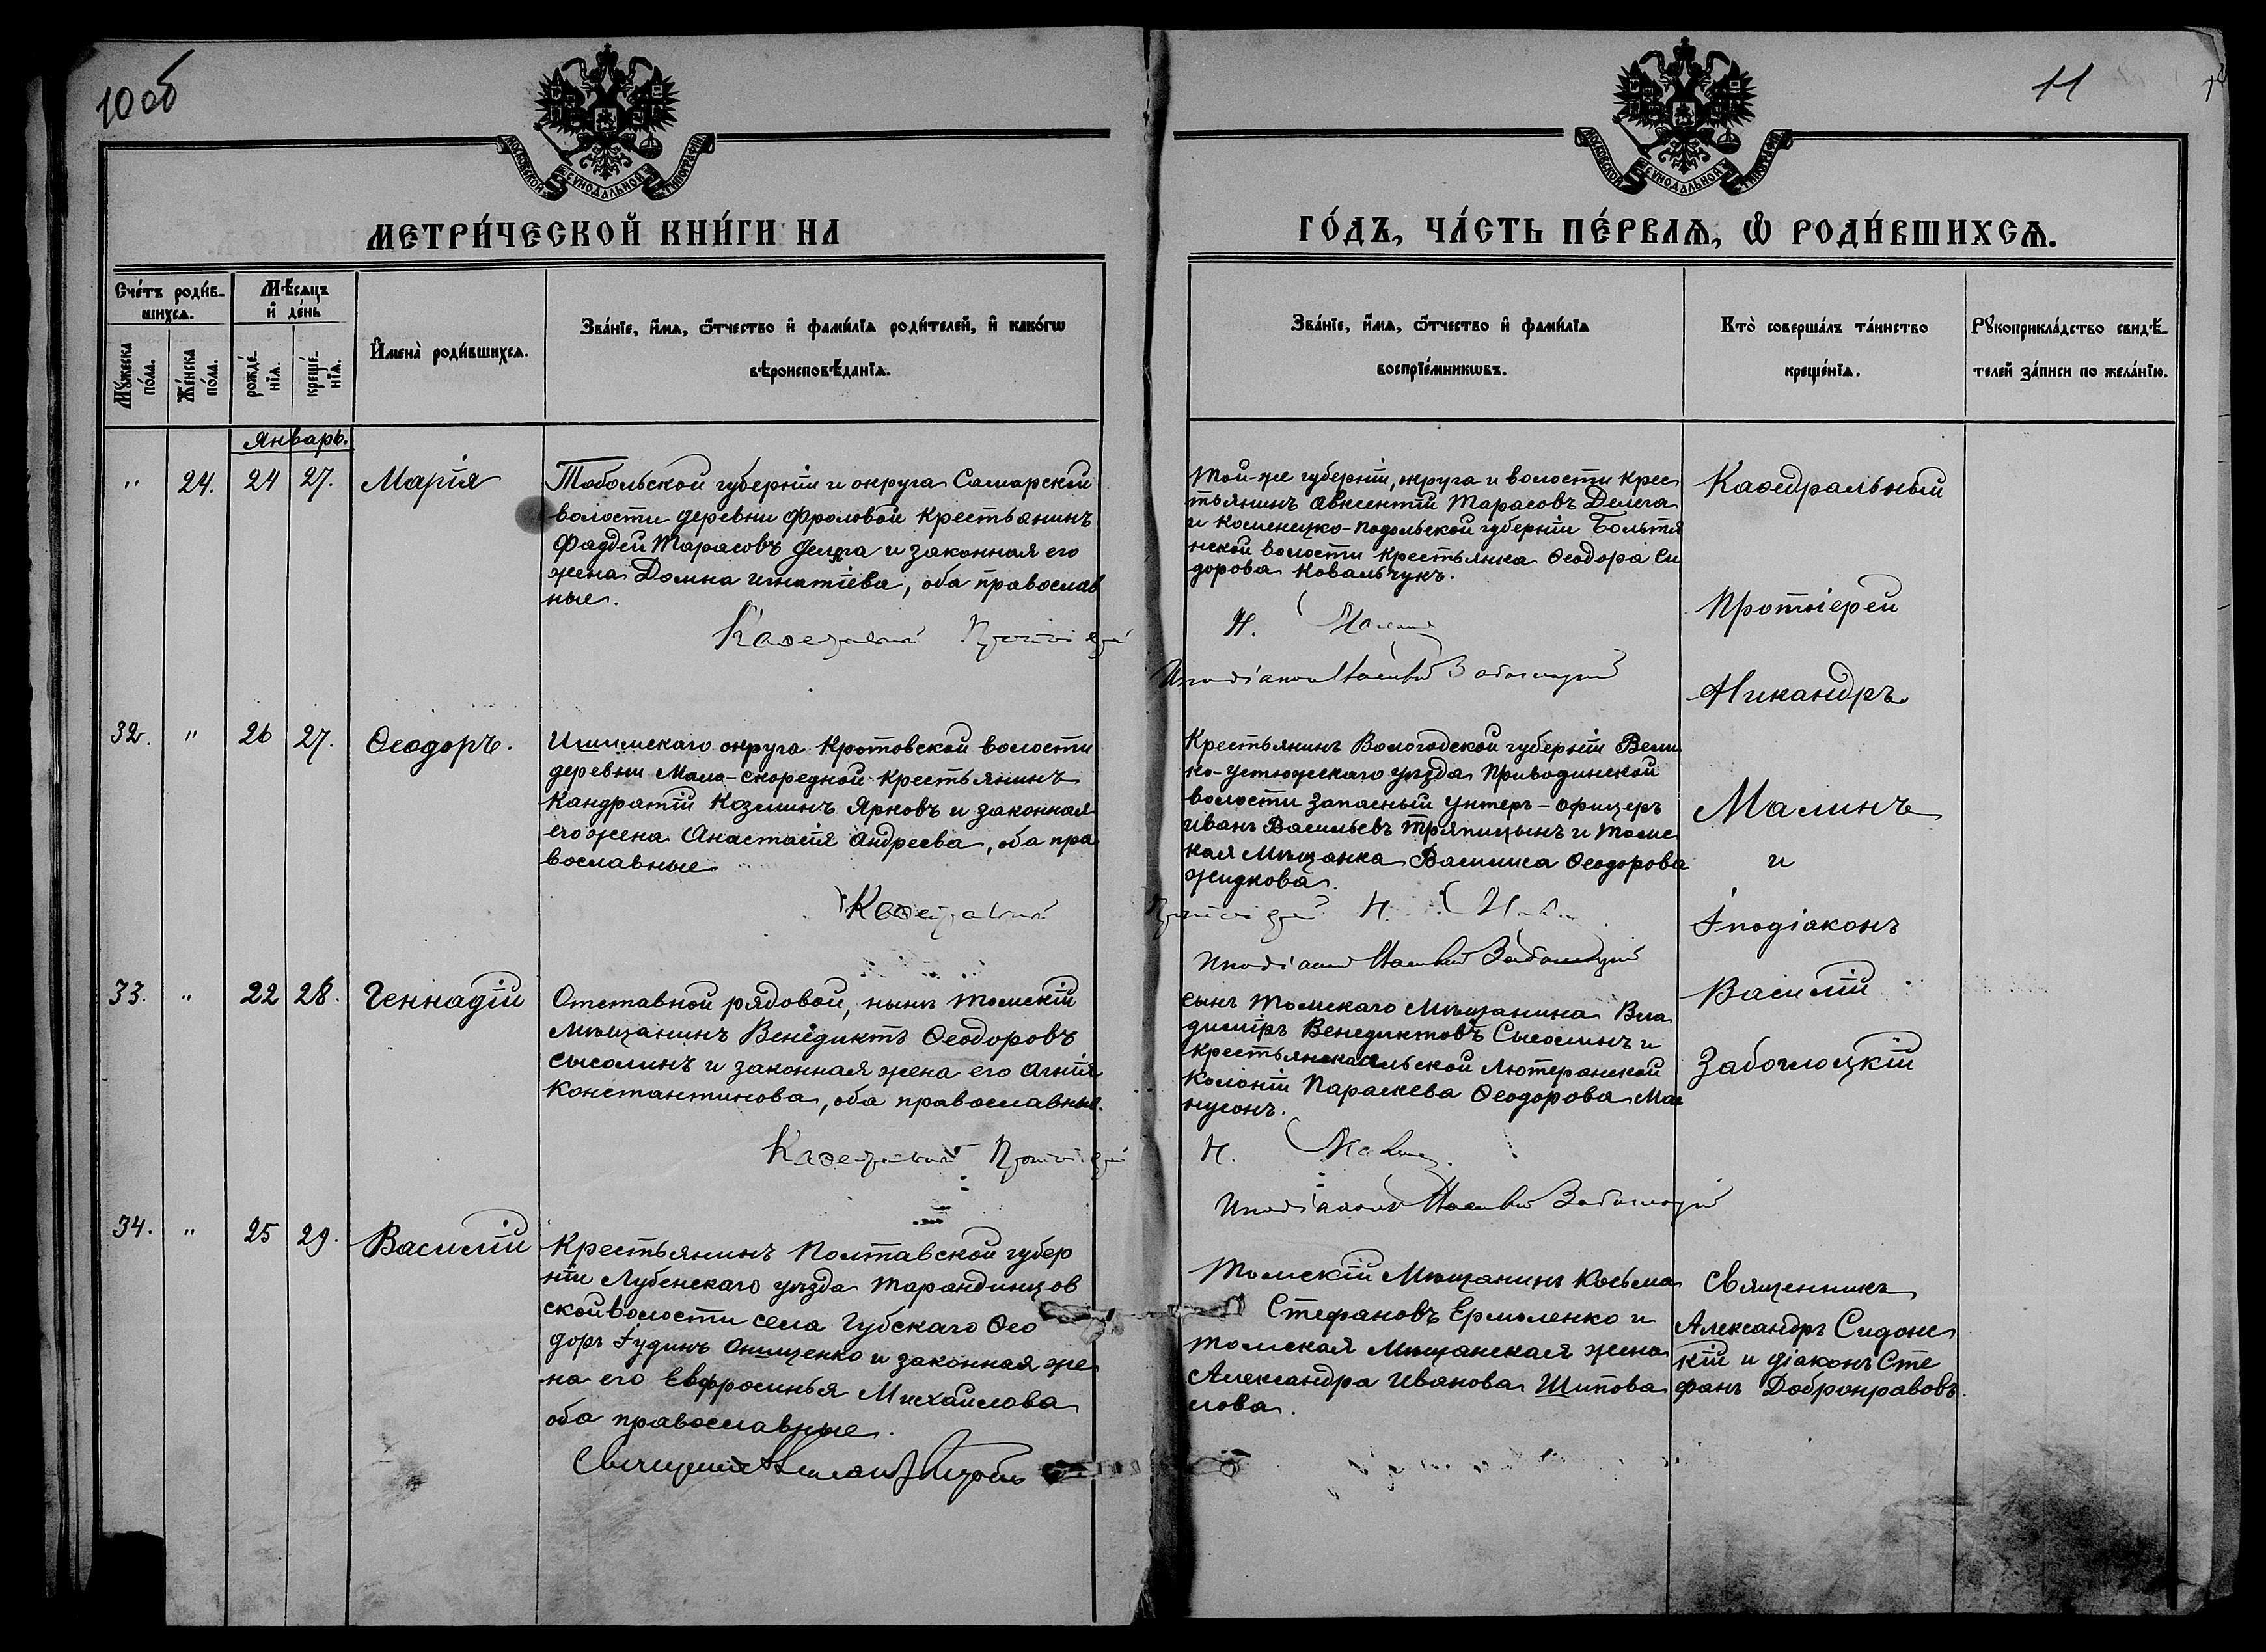 10 об
11
МОСКОВСКОЙ СѴНОДАЛЬНОЙ ТИПОГРАФІИ
МОСКОВСКОЙ СѴНОДАЛЬНОЙ ТИПОГРАФІИ
МЕТРИ́ЧЕСКОЙ КНИ́ГИ НА
ГО́ДЪ, ЧА́СТЬ ПЕ́РВАѦ, Ѡ҆ РОДИ́ВШИХСѦ.
Сче́тъ роди́в-
шихсѧ.
Мꙋ́жеска
по́ла.
Же́нска
по́ла.
Мѣ́сѧцъ
и҆ де́нь
рожде́-
нїѧ.
креще́-
нїѧ.
И҆мена̀ роди́вшихсѧ.
Зва́нїе, и҆́мѧ, ѻ҆́тчество и҆ фами́лїѧ роди́телей, и҆ како́гѡ
вѣроисповѣ́данїѧ.
Зва́нїе, и҆́мѧ, ѻ҆́тчество и҆ фами́лїѧ
воспрїе́мникѡвъ.
Кто̀ соверша́лъ та́инство
креще́нїѧ.
Рꙋкоприкла́дство свидѣ́-
телей за́писи по жела́нїю.
Январь.
" 24. 24 27. Марія
Тобольской губерніи и округа Самарской
волости деревни Фроловой крестьянинъ
Фаддей Тарасовъ Делега и законная его
жена Домна Игнатіева, оба православ
ные.
Каѳедральный Протоіерей
Той-же губерніи, округа и волости крес
тьянинъ Авксентій Тарасовъ Делега
и Каменецко-Подольской губерніи
нской волости крестьянка Ѳеодора Си
дорова Ковальчукъ.
Н. Малинъ
Иподіаконъ Василій Заблоцкий
Каѳедральный
Протоіерей
Никандръ
Малинъ
и
Іподіаконъ
Василій
Заблоцкій
32. " 26 27. Ѳеодоръ.
Ишимскаго округа Кротовской волости
деревни Мало-скоредной крестьянинъ
Кандратій Козминъ Ярковъ и законная
его жена Анастасія Андреева, оба пра
вославные
Каѳедральный
Крестьянинъ Вологодской губерніи Вели
ко-Устюжскаго уѣзда Приводинской
волости запасный унтеръ-офицеръ
Иванъ Васильевъ Тряпицынъ и томс
кая мѣщанка Васса Ѳеодорова
Жидкова.
Протоіерей Н. Малинъ
Иподіаконъ Василій Заблоцкий
33. " 22 28. Геннадій
Отставной рядовой, нынѣ томскій
мѣщанинъ Венедиктъ Ѳеодоровъ
Сысолинъ и законная жена его Агнія
Константинова, оба православные.
Каѳедральный Протоіерей
сынъ томскаго мѣщанина Вла
диміръ Венедиктовъ Сысолинъ и
крестьянка Лютеранской
колоніи Параскева Ѳеодорова Маг
нусонъ.
Н. Малинъ
Иподіаконъ Василій Заблоцкий
34. " 25 29. Василій
Крестьянинъ Полтавской губер
ніи Лубенскаго уѣзда Тарандинцов
ской волости села Губскаго Ѳео
доръ Іудинъ Онищенко и законная же
на его Евфросинья Михайлова
оба православные.
Священникъ
Томскій мѣщанинъ Косьма
Стефановъ Ермоленко и
томская мѣщанская жена
Александра Иванова Шипова
лова.
Священникъ
Александръ Сидонс
кій и діаконъ Сте
фанъ Добронравовъ.